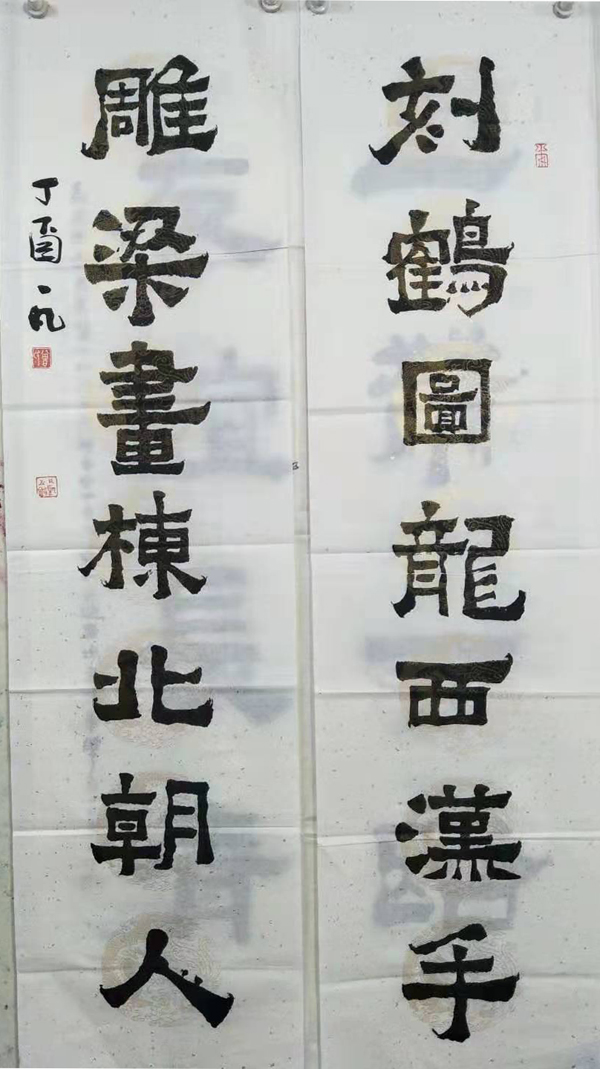 刻鶴圖龍西漢手
雕梁畫棟北朝人
丁酉一凡